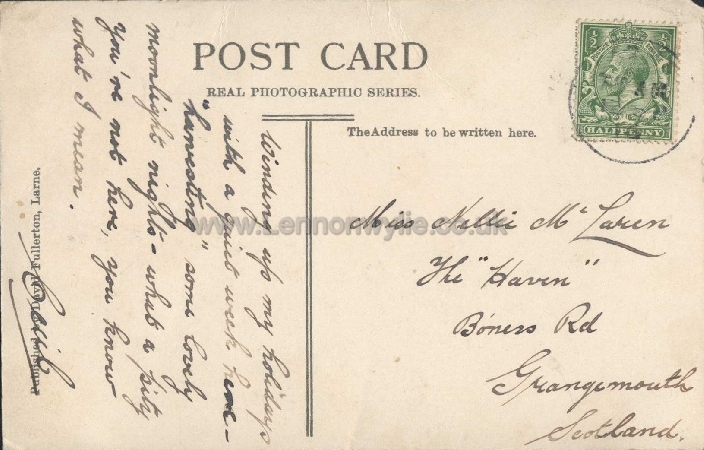 POST CARD
REAL PHOTOGRAPHIC SERIES.
The Address to be written here.
HALFPENNY
Winding up my holidays
with a quiet week here -
"harvesting" some lovely
moonlight nights - what a pity
you're not here, you know
what I mean.
Cecil
Miss Nellie McLaren
The "Haven"
Boness Rd
Grangemouth
Scotland.
Fullerton, Larne.
www.Lennonwylie.co.uk